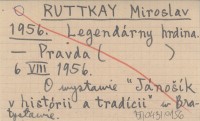 RUTTKAY Miroslav
1956. Legendárny hrdina.
— Pravda (          )
6 VIII 1956.
O wystawie "Jánošík
v histórii a tradícii" w Bra-
tysławie.